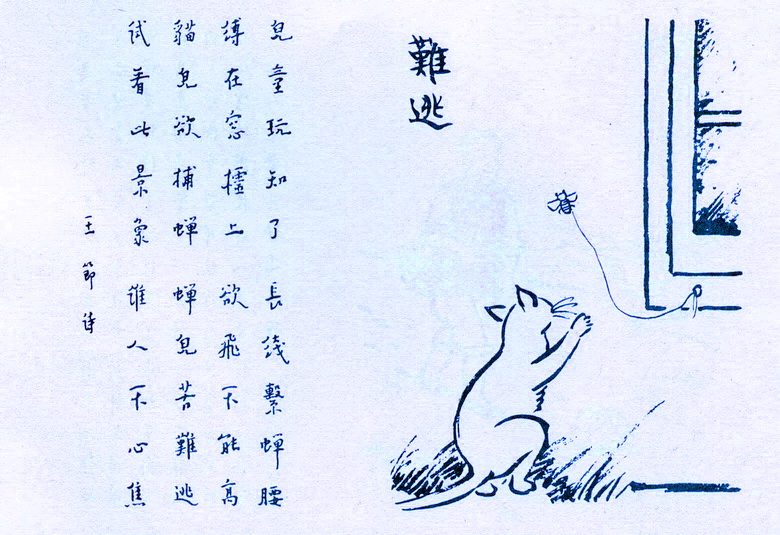 難逃
兒童玩知了 長线繫蝉腰
縛在窓檯上 欲飛不能高
貓兒欲捕蝉 蝉兒苦難逃
试看此景象 谁人不心焦
王節诗